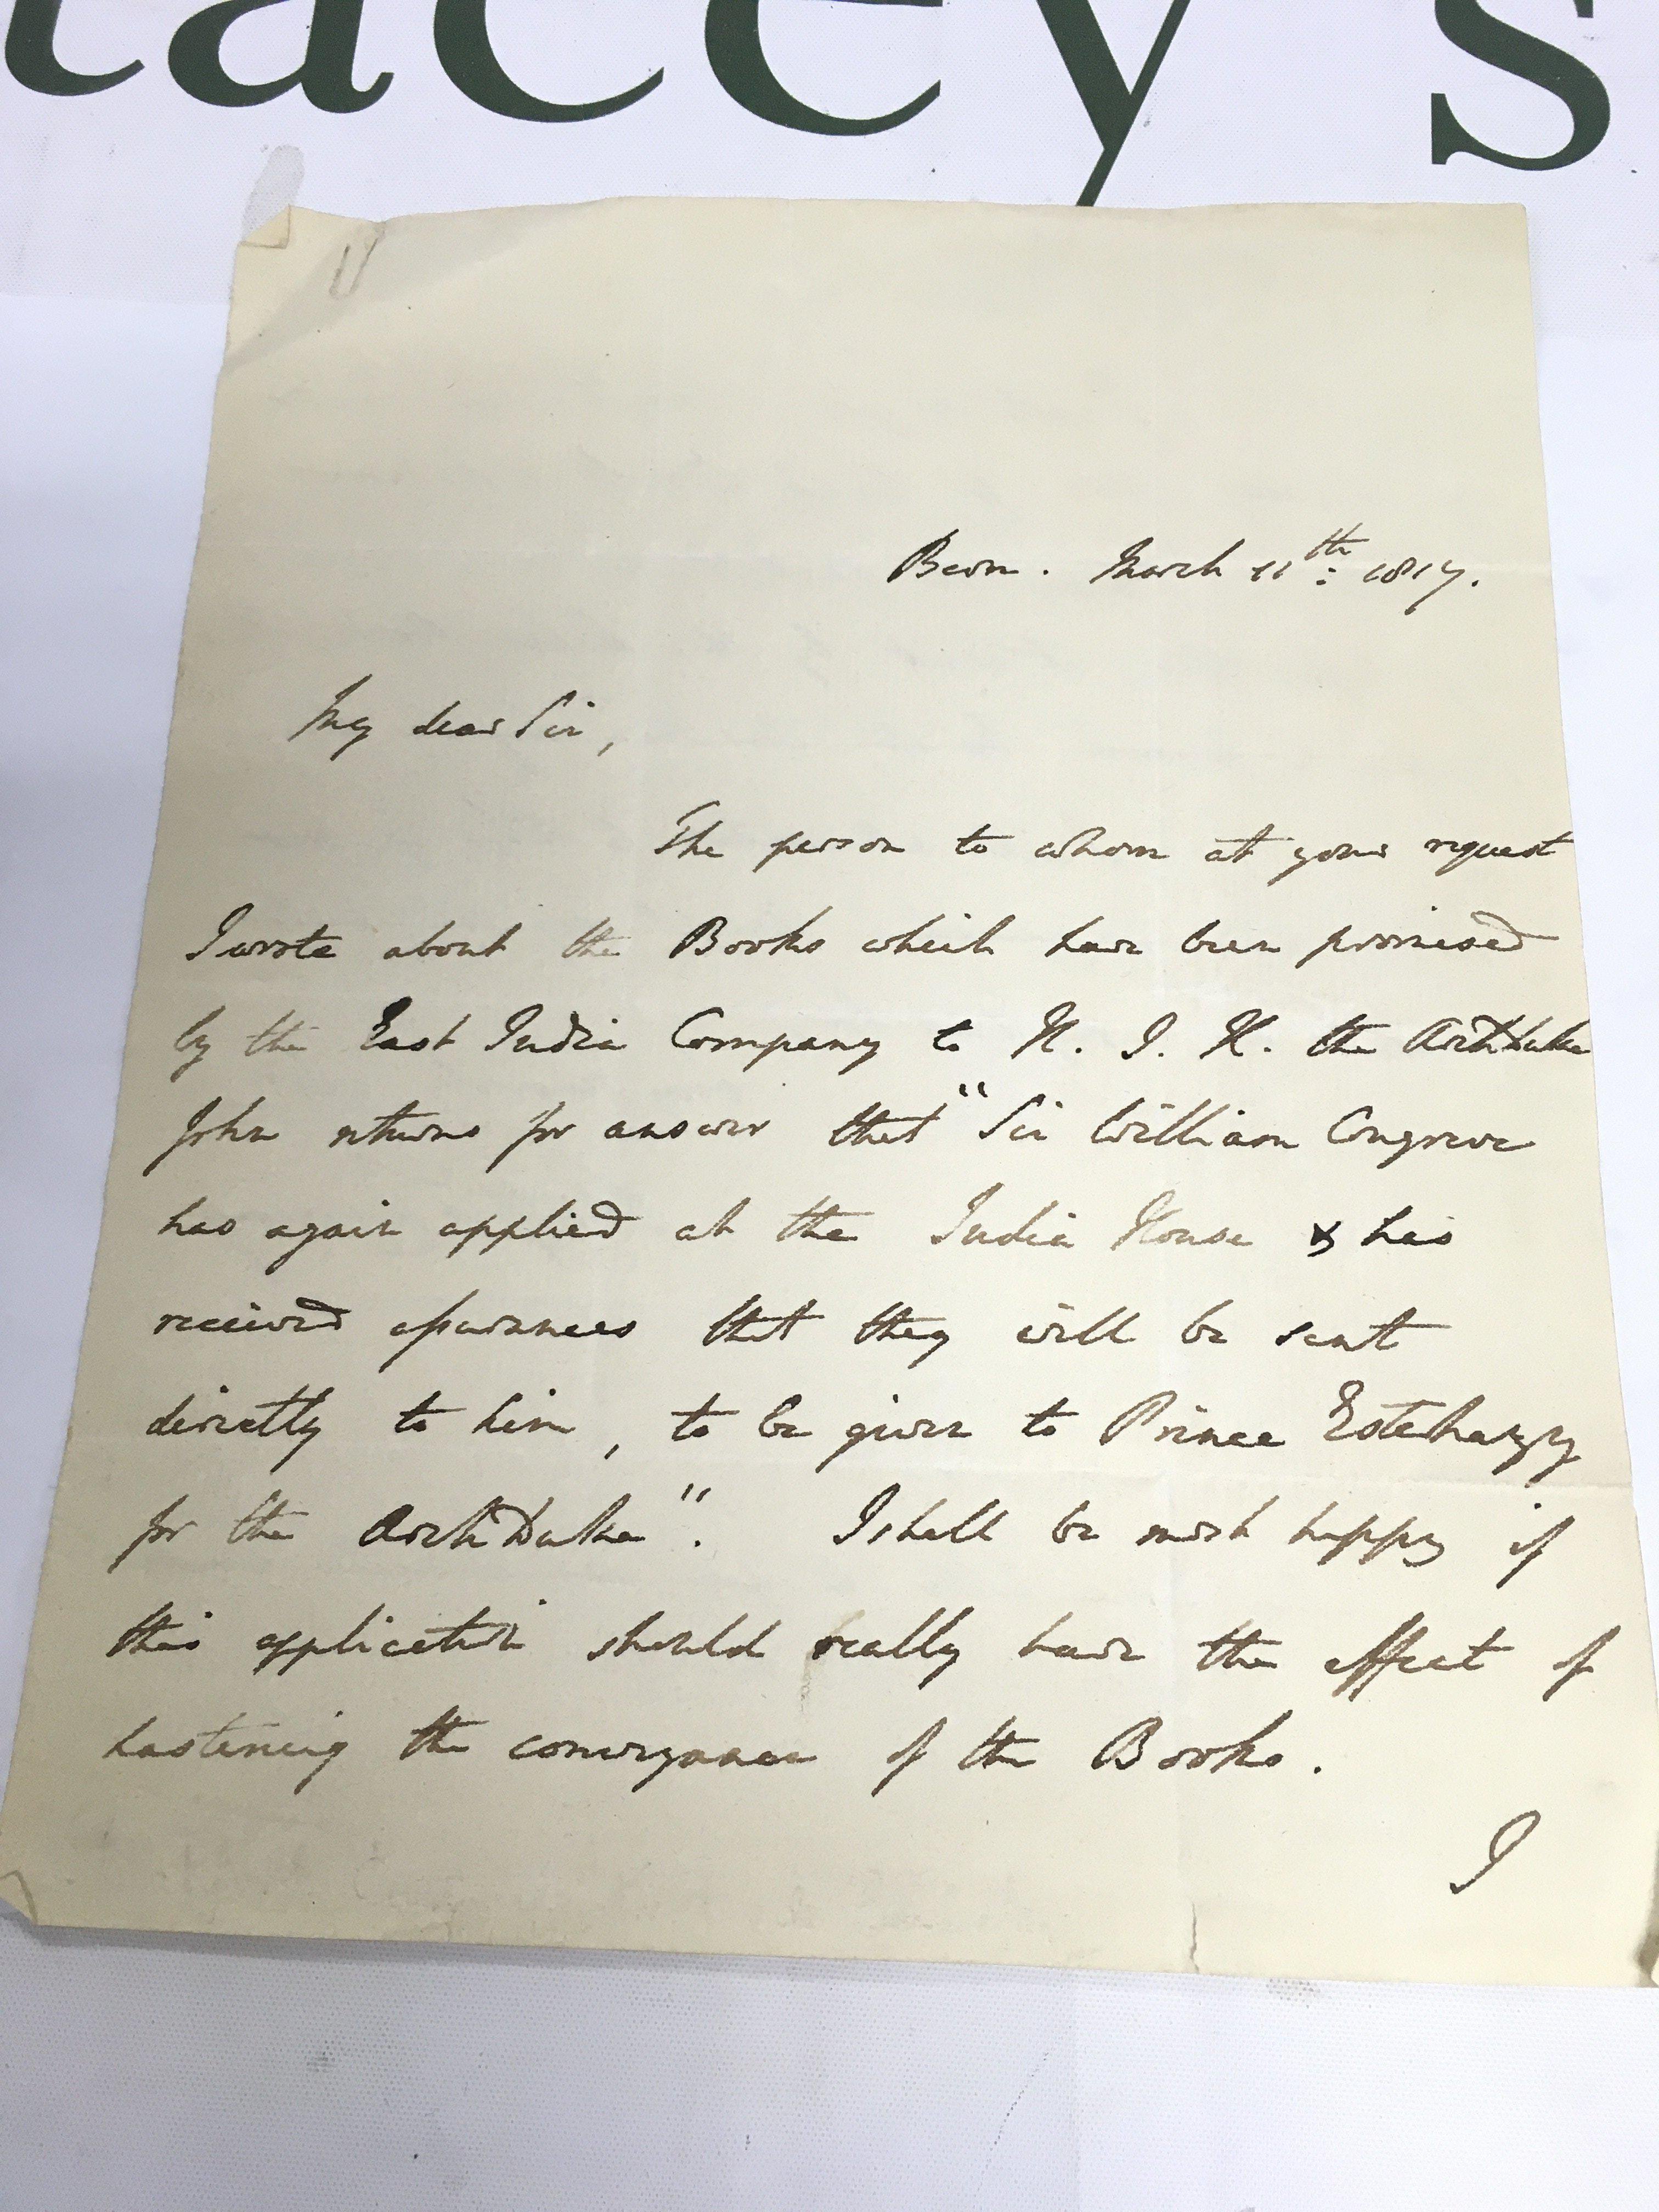 tacey's
Bern. March 11th: 1817.
My dear Sir,
The person to whom at your request
I wrote about the Books which have been promised
by the East India Company to H. I. H. the ArchDuke
John returns for answer that "Sir William Congreve
has again applied at the India House & has
received assurances that they will be sent
directly to him, to be given to Prince Esterhazy
for the ArchDuke". I shall be most happy if
this application should really have the effect of
hastening the conveyance of the Books.
I